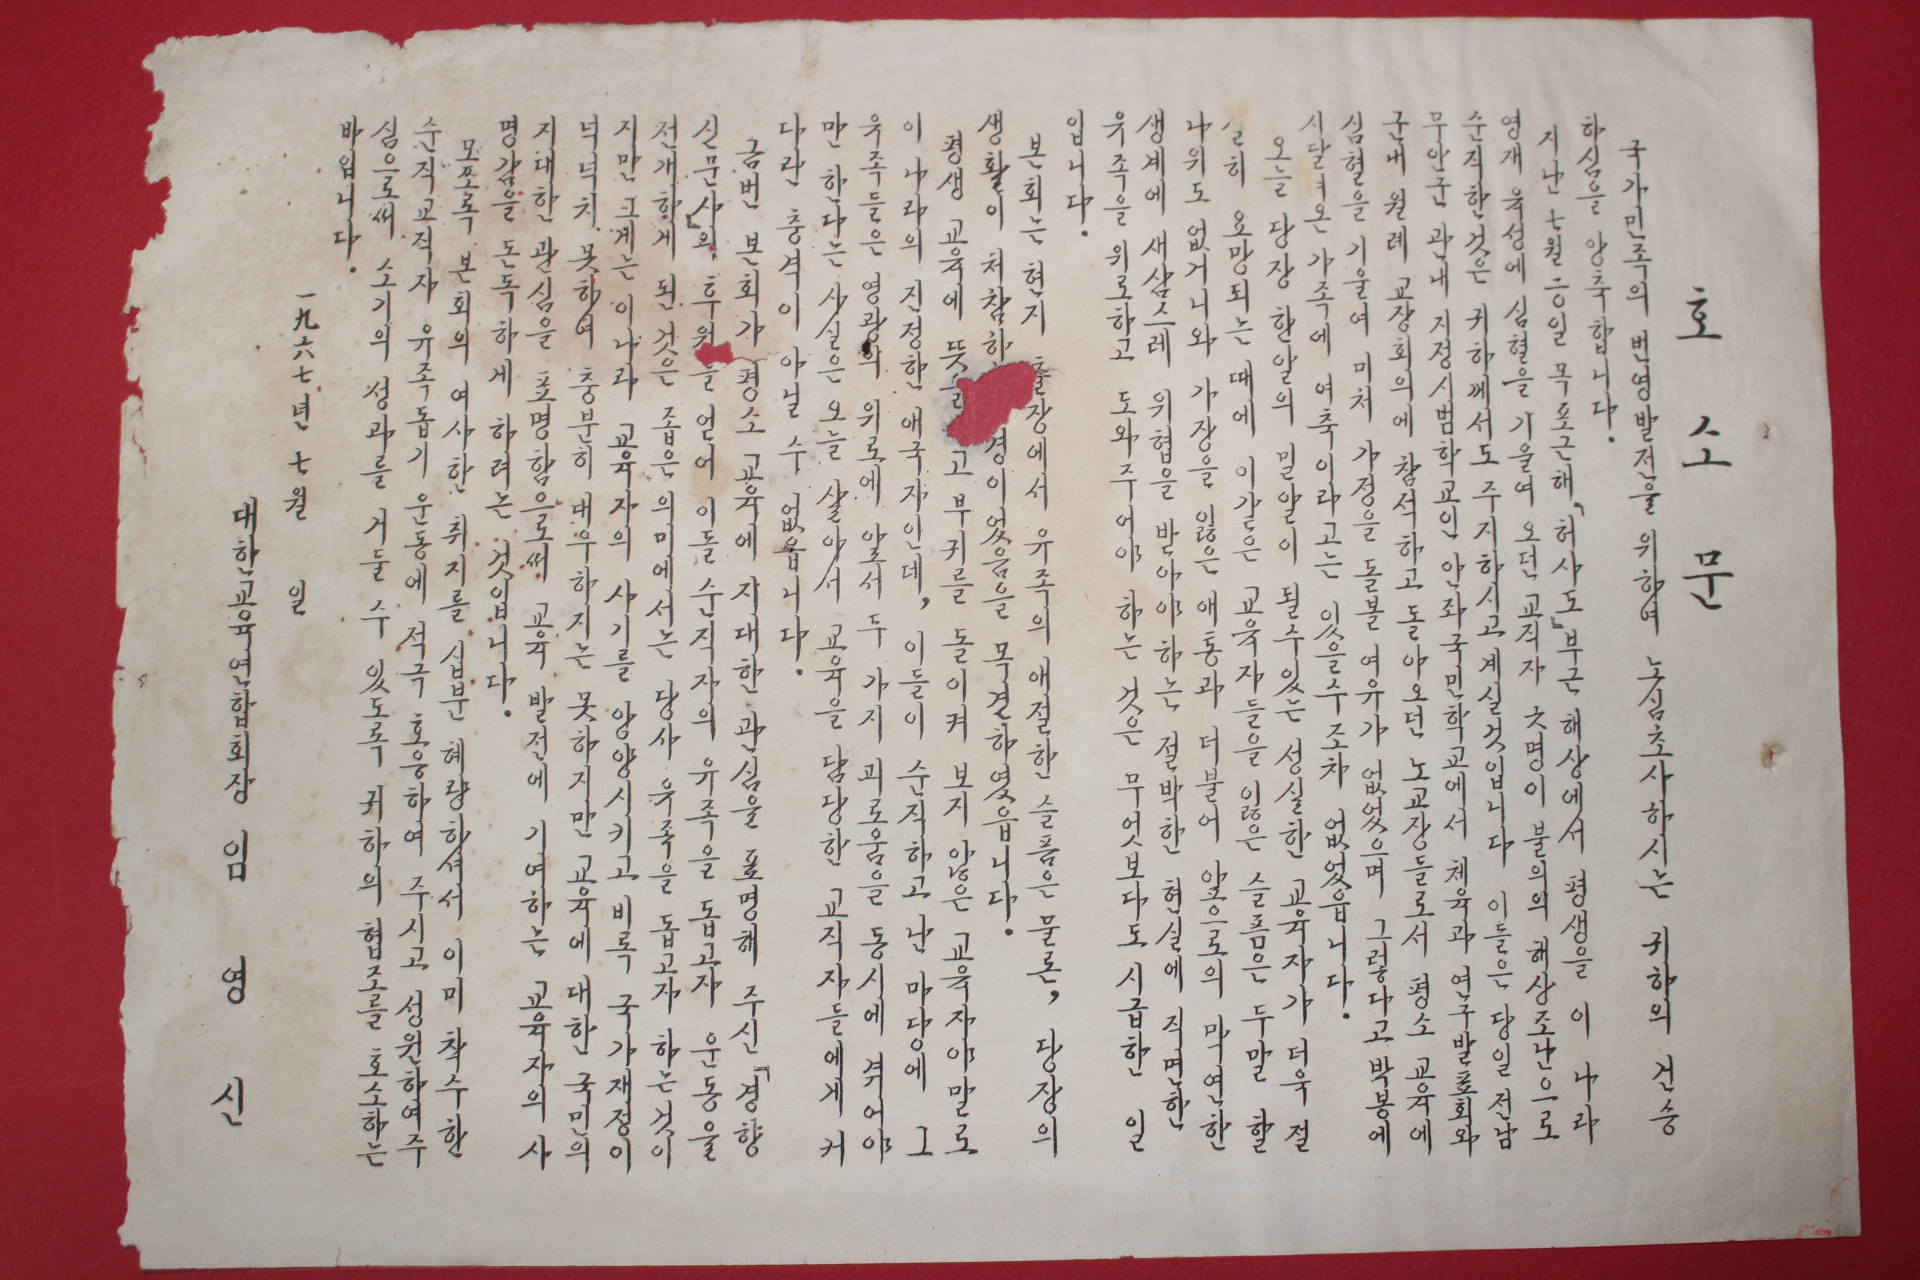 호소문
국가민족의 번영발전을 위하여 노심초사하시는 귀하의 건승
하심을 앙축합니다.
지난 七월 일 목포근해 「허사도」 부근 해상에서 평생을 이 나라
영재 육성에 심혈을 기울여 오던 교직자 명이 불의의 해상조난으로
순직한것은 귀하께서도 주지하시고 계실것입니다 이들은 당일 전남
무안군 관내 지정시범학교인 안좌국민학교에서 체육과 연구발표회와
군내 월례 교장회의에 참석하고 돌아오던 노교장들로서 평소 교육에
심혈을 기울여 미처 가정을 돌볼 여유가 없었으며 그렇다고 박봉에
시달려온 가족에 여축이라고는 있을수조차 없었읍니다.
오늘 당장 한알의 밀알이 될수있는 성실한 교육자가 더욱 절
실히 요망되는 때에 이같은 교육자들을 잃은 슬픔은 두말 할
나위도 없거니와 가장을 잃은 애통과 더불어 앞으로의 막연한
생계에 새삼스레 위협을 받아야 하는 절박한 현실에 직면한
유족을 위로하고 도와주어야 하는 것은 무엇보다도 시급한 일
입니다.
본회는 현지 출장에서 유족의 애절한 슬픔은 물론, 당장의
생활이 처참한 경이었음을 목견하였읍니다.
평생 교육에 뜻을 고 부귀를 돌이켜 보지 않은 교육자야말로
이 나라의 진정한 애국자인데, 이들이 순직하고 난 마당에 그
유족들은 영광의 위로에 앞서 두 가지 괴로움을 동시에 겪어야
만 한다는 사실은 오늘 살아서 교육을 담당한 교직자들에게 커
다란 충격이 아닐 수 없읍니다.
금번 본회가 평소 교육에 지대한 관심을 표명해 주신 「경향
신문사」의 후원을 얻어 이들 순직자의 유족을 돕고자 운동을
전개하게 된 것은 좁은 의미에서는 당사 유족을 돕고자 하는것이
지만 크게는 이나라 교육자의 사기를 앙양시키고 비록 국가재정이
넉넉치 못하여 충분히 대우하지는 못하지만 교육에 대한 국민의
지대한 관심을 표명함으로써 교육 발전에 기여하는 교육자의 사
명감을 돈독하게 하려는 것입니다.
모쪼록 본회의 여사한 취지를 십분 혜량하셔서 이미 착수한
순직교직자 유족돕기 운동에 적극 호응하여 주시고 성원하여주
심으로써 소기의 성과를 거둘 수 있도록 귀하의 협조를 호소하는
바입니다.
一九六七년 七월 일
대한교육연합회장 임영신